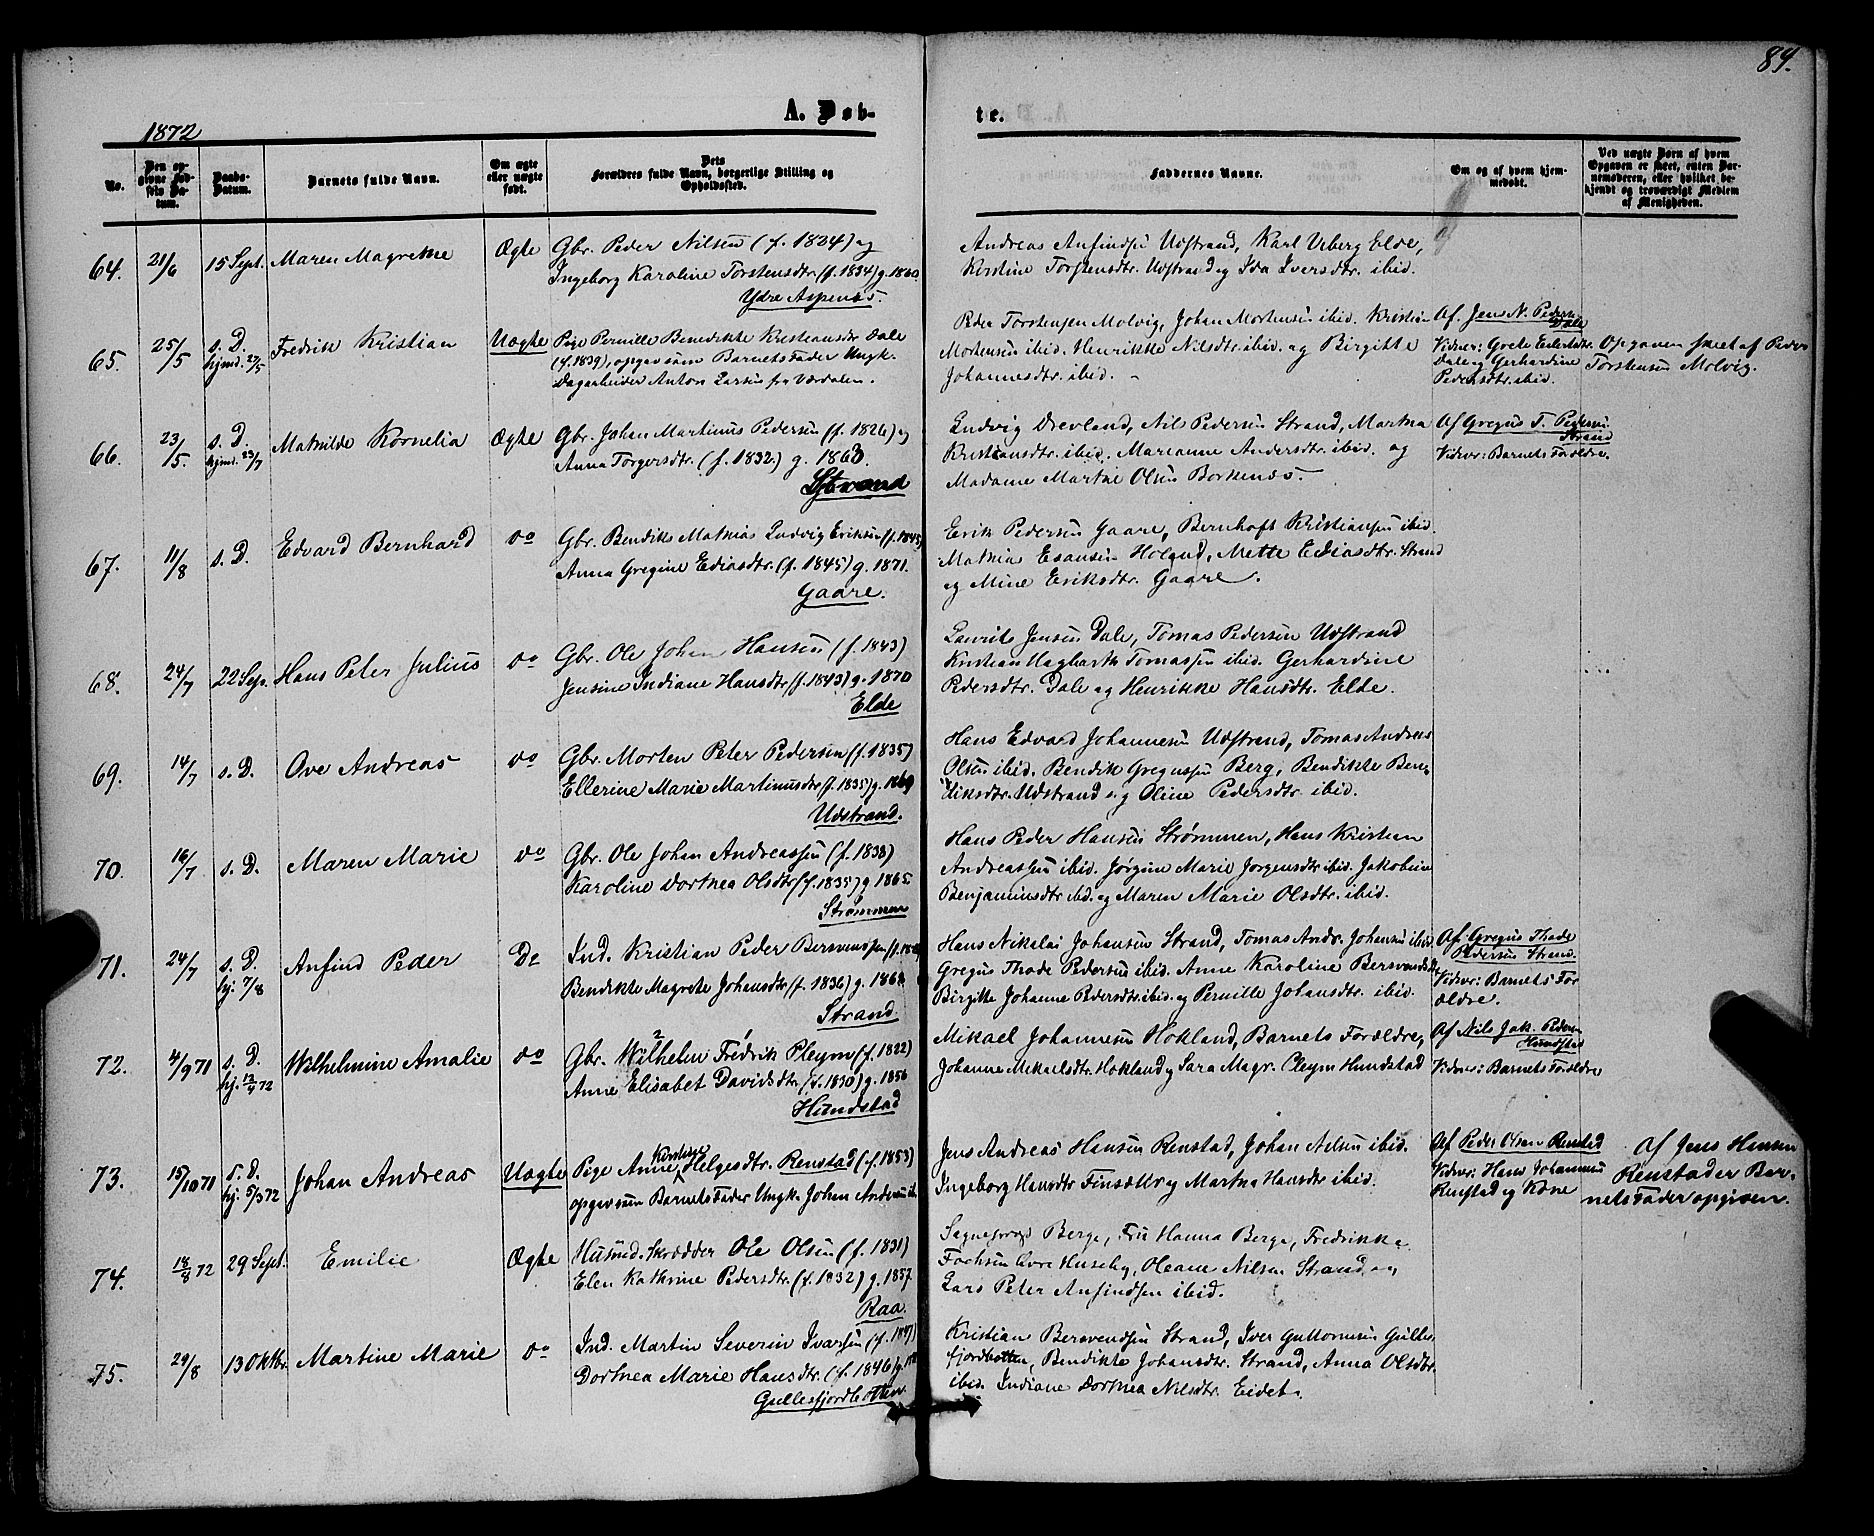 84.
1872
A. Døb-
te.
No.
Den op-
givne Fød-
sels Da-
tum.
Daabs-
Datum.
Barnets fulde Navn.
Om ægte
eller uægte
født.
Dets
Forældres fulde Navn, borgerlige Stilling og
Opholdssted.
Faddernes Navne.
Om og af hvem hjem-
medøbt.
Ved uægte Børn af hvem
Opgaven er skeet, enten Bar-
nemoderen, eller hvilket be-
kjendt og troværdigt Medlem
af Menigheden.
64. 21/6 15 Sept. Maren Magrethe Ægte Gbr. Peder Nilsen (f. 1824) og
Ingeborg Karoline Torstensdtr. (f. 1834) g. 1860
Ydre Aspenes.
Andreas Anfindsen Udstrand, Karl Viberg Elde,
Kirstine Torstensdtr. Udstrand og Ida Iversdtr. ibid.
65. 25/5 s. D. Fredrik Kristian Uægte Pige Pernille Benedikte Kristiansdtr. Dale
hjmd. 27/5 (f. 1839), opgav som Barnets Fader Ungk.
Dagarbeider Anton Larsen fra Værdalen.
Peder Torstensen Molvig, Johan Mortensen ibid. Kristian
Mortensen ibid. Henrikke Nilsdtr. ibid. og Birgitte
Johannesdtr. ibid.
Af Jen N. Pedersen
Dale
Vidner: Grete
Dale og Gerhardine
Pedersdtr. ibid.
Opgaven skeet af Peder
Torstensen Molvig.
66. 23/5. s. D. Mathilde Kornelia Ægte Gbr. Johan Martinus Pedersen (f. 1826) og
hjmd. 23/7 Anna Torgersdtr. (f. 1832.) g. 1860.
Strand
Ludvig Drevland, Nils Pedersen Strand, Martha
Kristiansdtr. ibid. Marianne Andersdtr. ibid. og
Madame Marthe Olsen Borkenes.
Af Gregus T. Pedersen
Strand
Vidner: Barnets Forældre.
67. 11/8 s. D. Edvard Bernhard do Gbr. Bendiks Mathias Ludvig Eriksen (f. 1845)
Anna Gregine Ediasdtr. (f. 1845) g. 1871.
Gaare.
Erik Pedersen Gaare, Bernhoft Kristiansen ibid.
Mathias Esaisen Holand, Mette Ediasdtr. Strand
og Mine Eriksdtr. Gaare.
68. 24/7 22 Sep. Hans Peter Julius do Gbr. Ole Johan Hansen (f. 1843)
Jensine Indiane Hansdtr. (f. 1843) g. 1870
Elde
Laurits Jensen Dale, Tomas Pedersen Udstrand
Kristian Hagbarth Tomassen ibid. Gerhardine
Pedersdtr. Dale og Henrikke Hansdtr. Elde.
69. 14/7 s. D. Ove Andreas do Gbr. Morten Peter Pedersen (f. 1835)
Ellerine Marie Martinusdtr. (f. 1835) g. 1860
Udstrand.
Hans Edvard Johannesen Udstrand, Tomas Andreas
Olsen ibid. Bendik Gregussen Berg, Bendikte Ben-
diksdtr. Udstrand og Oline Pedersdtr. ibid.
70. 16/7 s. D. Maren Marie do Gbr. Ole Johan Andreassen (f. 1838)
Karoline Dorthea Olsdtr. (f. 1835) g. 1865.
Strømmen
Hans Peder Hansen Strømmen, Hans Kristian
Andreassen ibid. Jørgine Marie Jørgensdtr. ibid. Jakobine
Benjaminsdtr. ibid. og Maren Marie Olsdtr. ibid.
71. 24/7 s. D. Anfind Peder Do Ind. Kristian Peder Bersvendsen
hj. 7/8 Bendikte Magrete Johansdtr. (f. 1836) g.
Strand
Hans Nikolai Johansen Strand, Tomas Andr. Johansen ibid.
Gregus Thode Pedersen ibid. Anne Karoline Bersvendsdtr.
Birgitte Johanne Pedersdtr. ibid. og Pernille Johansdtr. ibid.
Af Gregus Thode
Pedersen Strand.
Vidner: Barnets For-
ældre.
72. 4/9 71 s. D. Wilhelmine Amalie do Gbr. Wilhelm Fredrik Pleym (f. 1822)
hj. 72 Anne Elisabet Davidsdtr. (f. 1830) g. 1856
Hundstad
Mikael Johannesen Hokland, Barnets Forældre,
Johanne Mikaelsdtr. Hokland og Sara Magr. Pleym Hundstad
Af Nils Jak. Peders
Hundstad
Vidner: Barnets Forældre
73. 15/10 71 s. D. Johan Andreas Uægte Pige Anne Kirstine Helgesdtr. Renstad (f. 1853)
hj. 5/3 72 opgav som Barnets Fader Ungk. Johan Andersen ib.
Jens Andreas Hansen Renstad, Johan Nilsen ibid.
Ingeborg Hansdtr. Finsæter og Martha Hansdtr. ibid.
Af Peder Olsen Renstad
Vidner: Hans Johannesen
Renstad og Kone
Af Jens Hansen
Renstad er Bar-
nets Fader opgiven.
74. 18/8 72 29 Sept. Emilie Ægte Husmd. Skrædder Ole Olsen (f. 1831)
Elen Kathrine Pedersdtr. (f. 1832) g. 1857
Raa.
Sognepræst Berge, Fru Hanna Berge, Fredrikke
Fochsen Øvre Huseby, Oleane Nilsen Strand og
Lars Peter Anfindsen ibid.
75. 29/8 13 Oktbr. Martine Marie do Ind. Martin Severin Ivarsen (f. 1847)
Dorthea Marie Hansdtr. (f. 1846) g.
Gullesfjordbotten.
Kristian Bersvendsen Strand, Iver Guttormsen Gulles-
fjordbotten, Bendikte Johansdtr. Strand, Anna Olsdtr.
ibid. Indiane Dorthea Nilsdtr. Eidet.